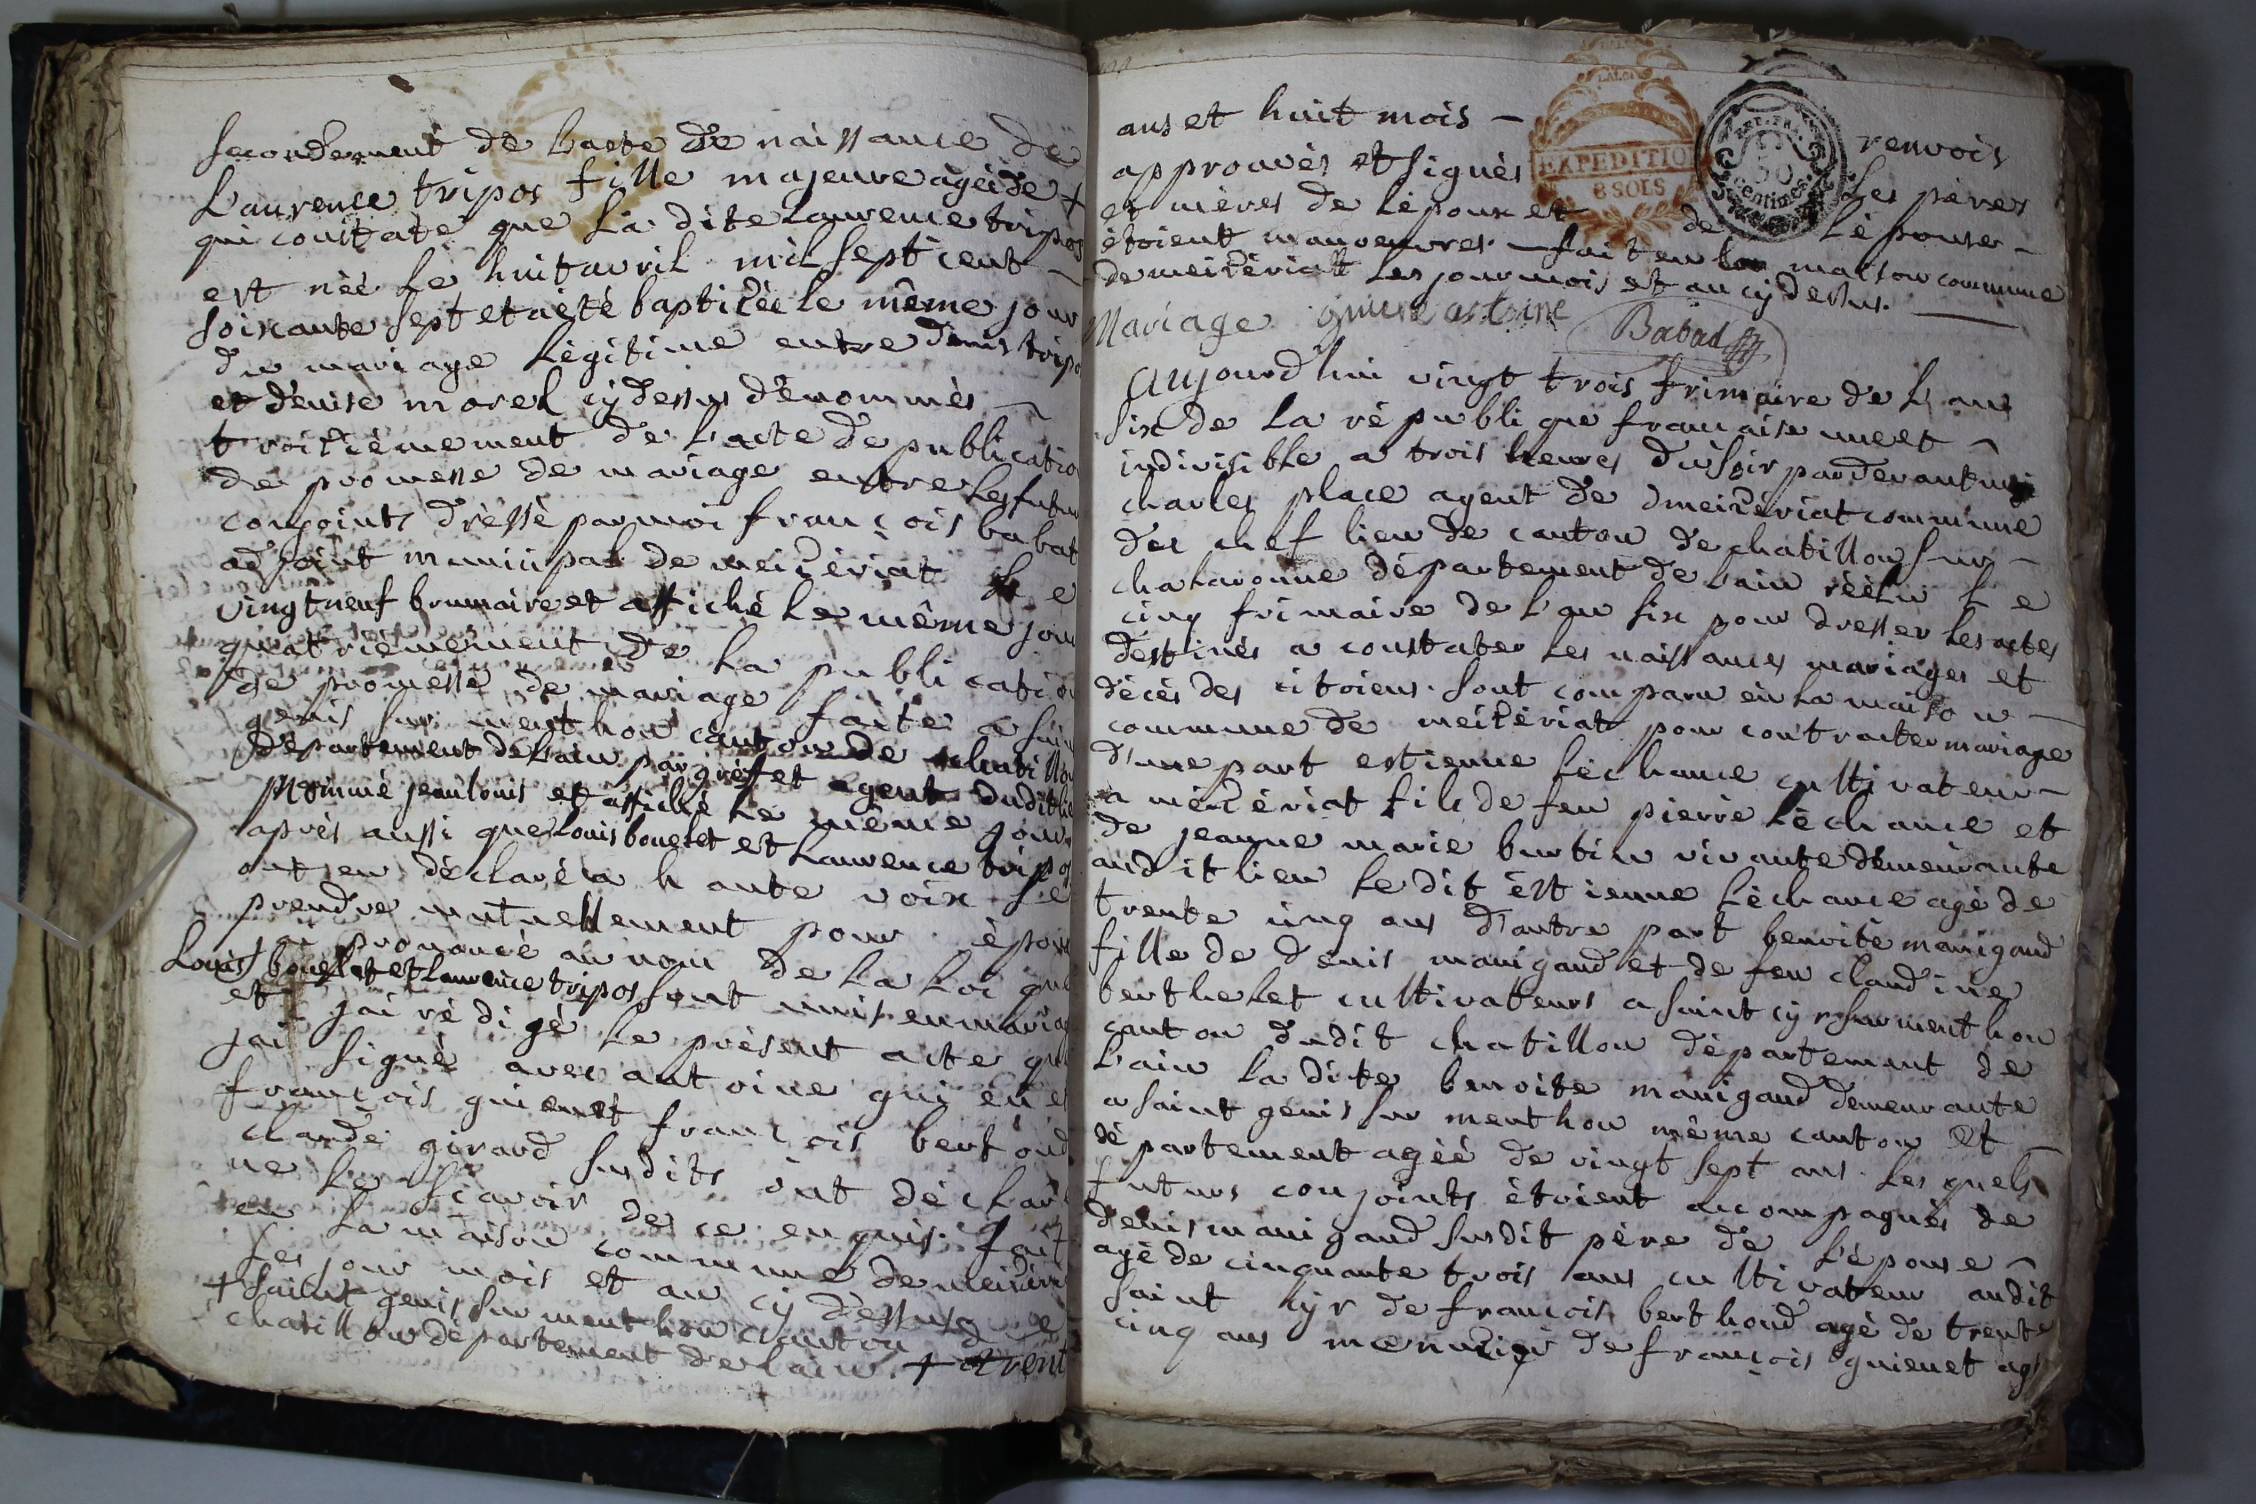 secondement de lacte de naissance de
Laurence tripos fille majeure agéé de +
qui coustate que la dite Laurence tripos
est néé le huit avril mil sept cent
soixante sept et a été baptizéé le même jour
du mariage légitime entre denis tripo
et denise morel cy dessus dénommés
troiziémement de lacte de publicatio
de promesse de mariage entre les futur
conjoints dréssé par moi francois babat
adjoint municipal de meizériat le
vingt neuf brumaire et affiché le même jour
quatriémement de la publication
de promesse de mariage faite a sain
genis sur menthon canton de chatillon
département de lain par gref et agent dudit lie
Nommé jean louis et affiché le même jour
aprés aussi que Louis bouelet et Laurence tripos
ont eu déclaré a haute voix se
prendre mutuellement pour épou
jai prononcé au nom de la loi que
Louis bouellet et Laurence tripos sont unis en mariag
et jai rédigé le présent acte que
jai signé avec antoine
francois guienet francois bertoud
claude girard susdits ont déclaré
ne le scavoir de ce enquis fait
en la maison commune de meizéri
les jour mois et an cy déssus
+ saint genis sur menthon canton de
chatillon département de lain + trent
ans et huit mois — renvois
approuvés et signés les péres
et méres de lépoux et de lépouse —
étoient manoeuvres — fait en la maison commune
de meizériat les jour mois et an cy dessus.
Mariage antoine Babad
Aujourdhui vingt trois frimaire de lan
six de la république francaise une et
indivisible a trois heures du soir pardevant moi
charles place agent de meizériat commune
des chef lieu de canton de chatillon sur
chalaronne département de lain réélu le
cinq frimaire de lan six pour dresser les actes
déstinés a constater les naissances mariages et
décés des citoiens. sont comparu en la maison
commune de meizériat pour contracter mariage
dune part estienne léchance cultivateur
a méizériat fils de feu pierre léchance et
de jeanne marie burtin vivante démeurante
audit lieu le dit éstienne léchance agé de
trente cinq ans dautre part benoite manigand
fille de denis manigand et de feu claudine
berthelet cultivateurs a saint cyr sur menthon
canton dudit chatillon département de
lain la dite benoite manigand demeurante
a saint genis sur menthon même canton et
département agéé de vingt sept ans. les quels
futurs conjoints étoient accompagnés de
denis manigand susdit pére de lépouse
agé de cinquante trois ans cultivateur audit
saint cyr de francois berthoud agé de trente
cinq ans de francois guienet agé
EXPEDITION
8 SOLS
50
centimes